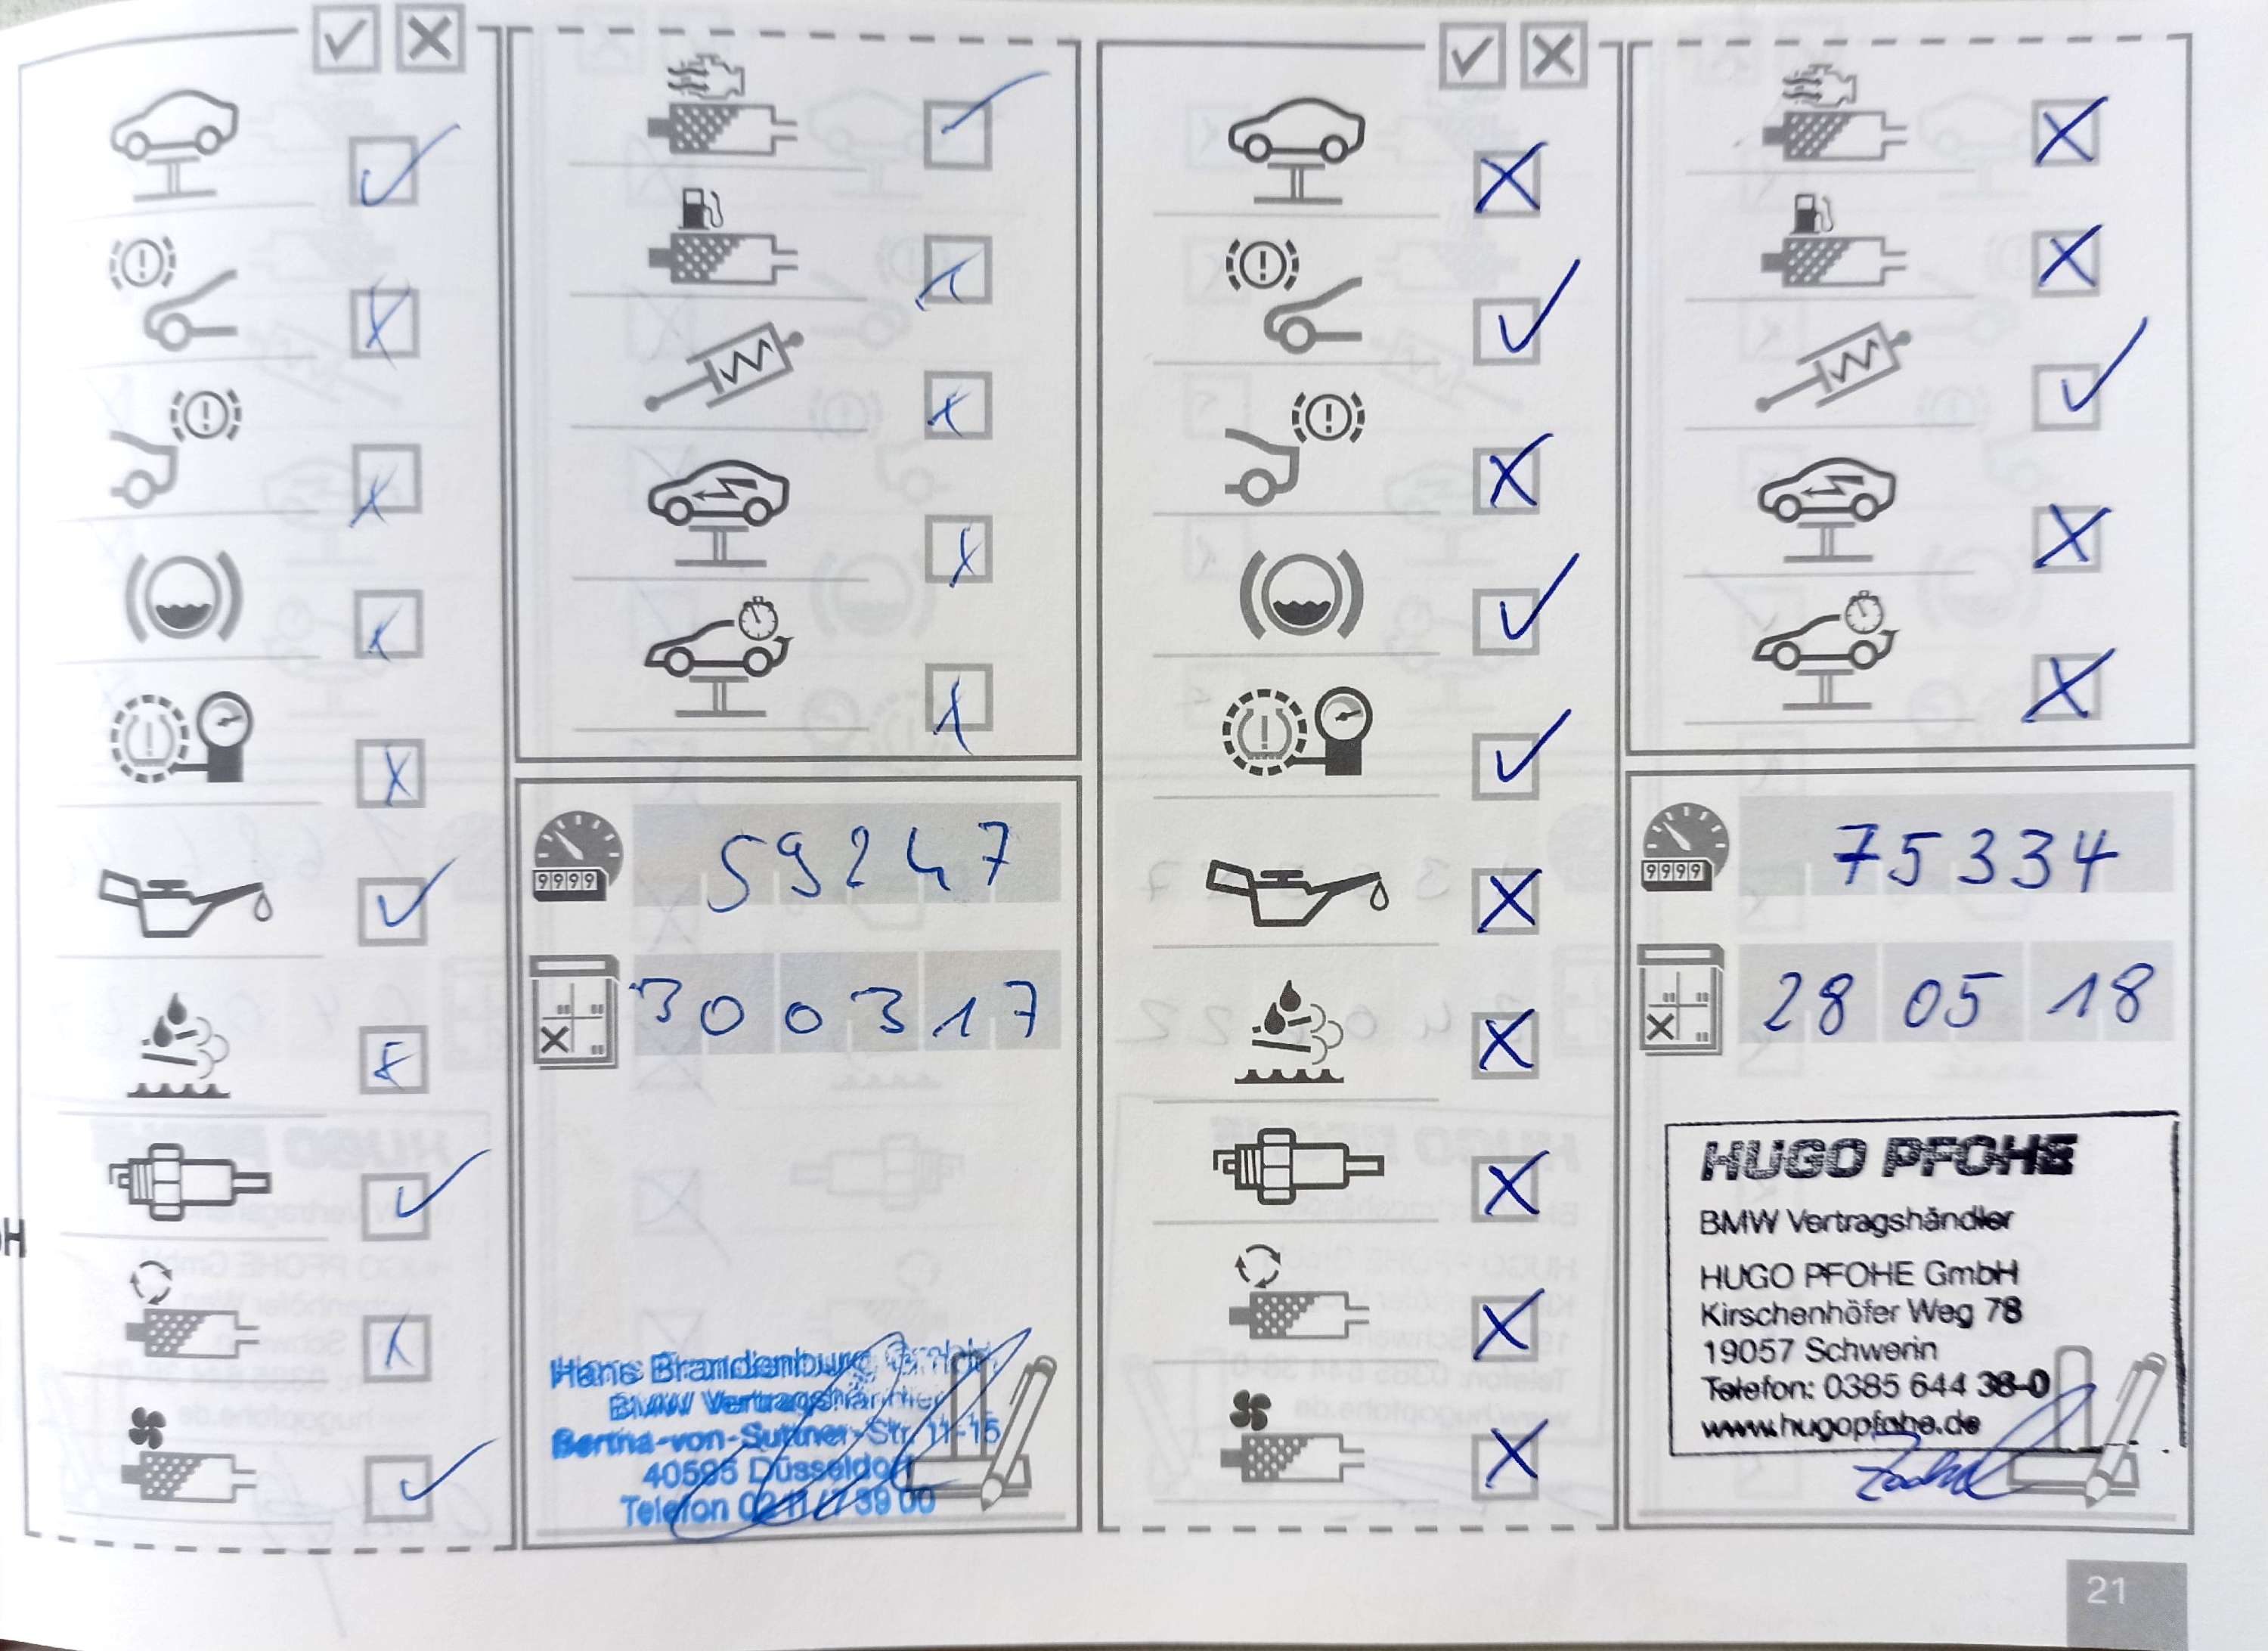 9999
59247
30 03 17
Hans Brandenburg GmbH
BMW Vertragshändler
Bertha-von-Suttner-Str. 11-15
40595 Düsseldorf
Telefon 0211/7 39 00
9999
75334
28 05 18
HUGO PFOHE
BMW Vertragshändler
HUGO PFOHE GmbH
Kirschenhöfer Weg 78
19057 Schwerin
Telefon: 0385 644 38-0
www.hugopfohe.de
21